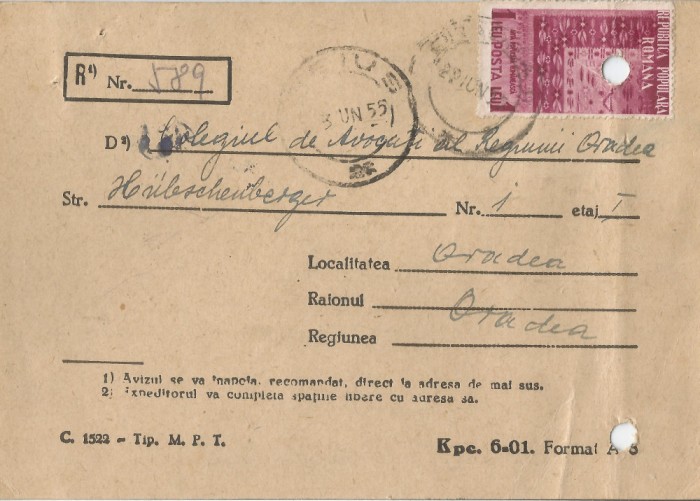 REPUBLICA POPULARA
ROMANA
LEI POSTA LEI
R¹) Nr. 789
UN 55
29 IUN
D²) Colegiul de Avocați al Regiunii Oradea
Str. Hübschenberger Nr. 1 etaj I
Localitatea Oradea
Raionul Oradea
Regiunea
1) Avizul se va înapoia, recomandat, direct la adresa de mai sus.
2) Expeditorul va completa spațiile libere cu adresa sa.
C. 1522 - Tip. M. P. T.
Kpc. 6-01. Format A 6